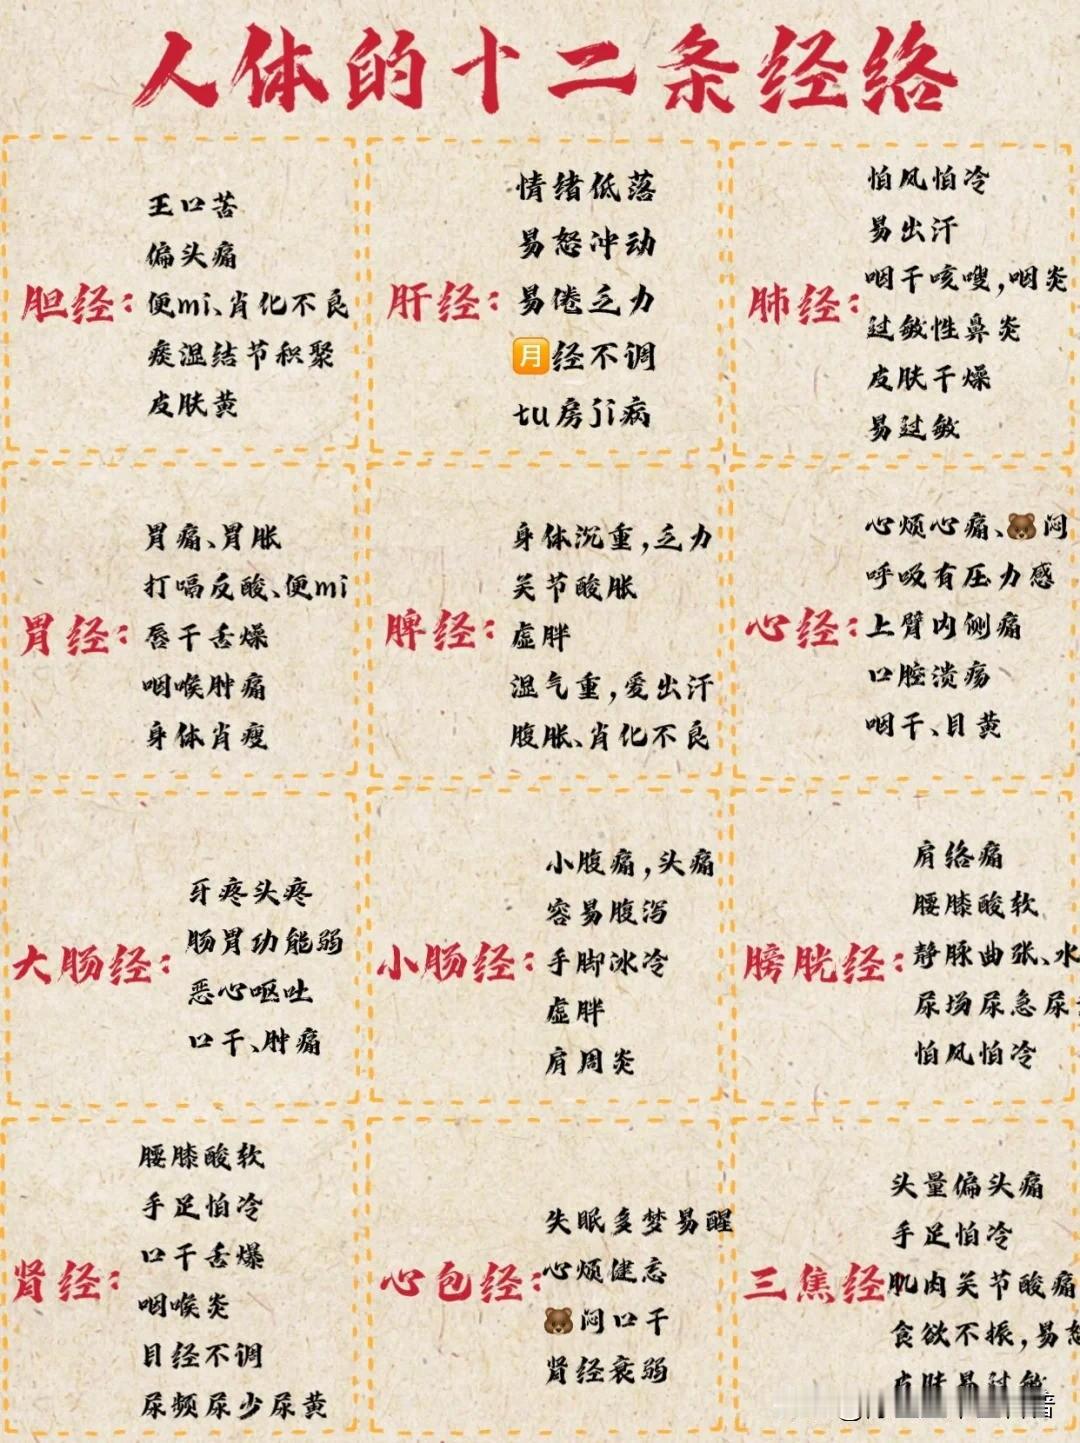 人体的十二条经络
胆经：
王口苦
偏头痛
便mi、肖化不良
痰湿结节积聚
皮肤黄
肝经：
情绪低落
易怒冲动
易倦乏力
月经不调
tu房ji病
肺经：
怕风怕冷
易出汗
咽干咳嗽，咽炎
过敏性鼻炎
皮肤干燥
易过敏
胃经：
胃痛、胃胀
打嗝反酸、便mi
唇干舌燥
咽喉肿痛
身体肖瘦
脾经：
身体沉重，乏力
关节酸胀
虚胖
湿气重，爱出汗
腹胀、肖化不良
心经：
心烦心痛、🐻闷
呼吸有压力感
上臂内侧痛
口腔溃疡
咽干、目黄
大肠经：
牙疼头疼
肠胃功能弱
恶心呕吐
口干、肿痛
小肠经：
小腹痛，头痛
容易腹泻
手脚冰冷
虚胖
肩周炎
膀胱经：
肩络痛
腰膝酸软
静脉曲张、水
尿场尿急尿
怕风怕冷
肾经：
腰膝酸软
手足怕冷
口干舌爆
咽喉炎
目经不调
尿频尿少尿黄
心包经：
失眠多梦易醒
心烦健忘
🐻闷口干
肾经衰弱
三焦经
头量偏头痛
手足怕冷
肌肉关节酸痛
食欲不振，易怒
皮肤易过敏